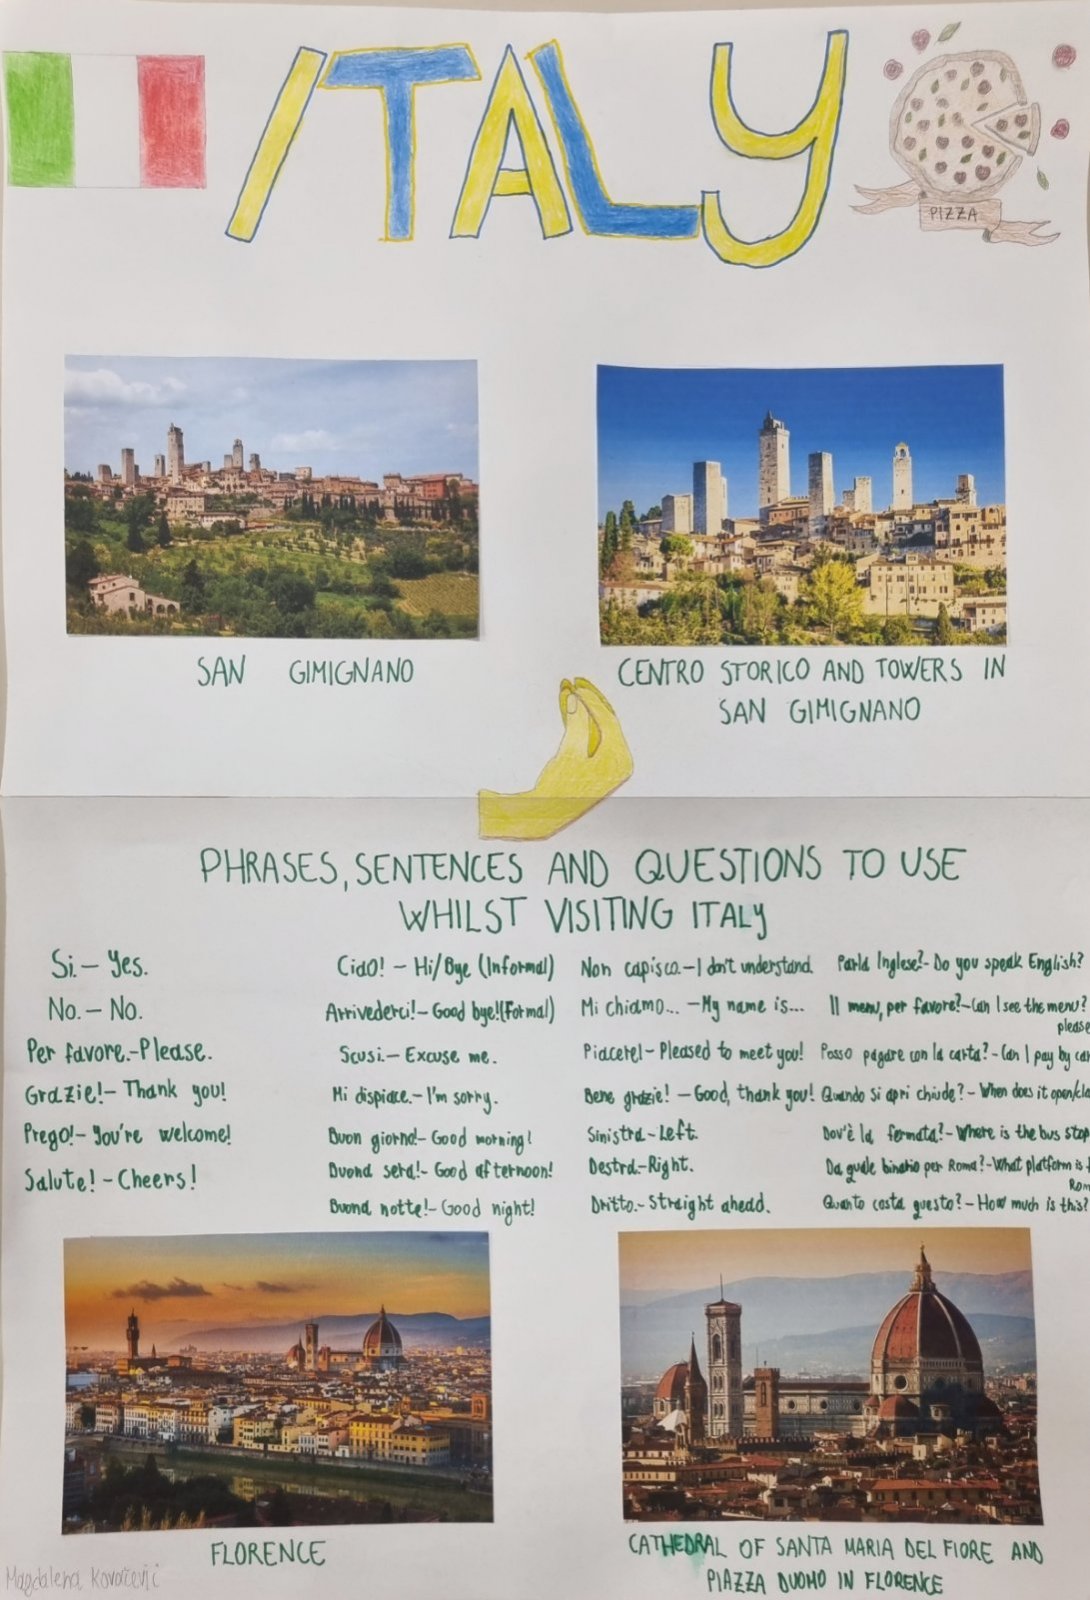 ITALY
PIZZA
SAN GIMIGNANO
CENTRO STORICO AND TOWERS IN
SAN GIMIGNANO
PHRASES, SENTENCES AND QUESTIONS TO USE
WHILST VISITING ITALY
Si. – Yes.
No. – No.
Per favore. – Please.
Grazie! – Thank you!
Prego! – You're welcome!
Salute! – Cheers!
Ciao! – Hi/Bye (Informal)
Arrivederci! – Good bye! (Formal)
Scusi. – Excuse me.
Mi dispiace. – I'm sorry.
Buon giorno! – Good morning!
Buona sera! – Good afternoon!
Buona notte! – Good night!
Non capisco. – I don't understand.
Mi chiamo... – My name is...
Piacere! – Pleased to meet you!
Bene grazie! – Good, thank you!
Sinistra – Left.
Destra – Right.
Dritto. – Straight ahead.
Parla Inglese? – Do you speak English?
Il menu, per favore? – Can I see the menu?
please
Posso pagare con la carta? – Can I pay by
Quando si apri chiude? – When does it open/
Dov'è la fermata? – Where is the bus stop
Da quale binario per Roma? – What platform is
Quanto costa questo? – How much is this?
FLORENCE
CATHEDRAL OF SANTA MARIA DEL FIORE AND
PIAZZA DUOMO IN FLORENCE
Magdalena Kovačević